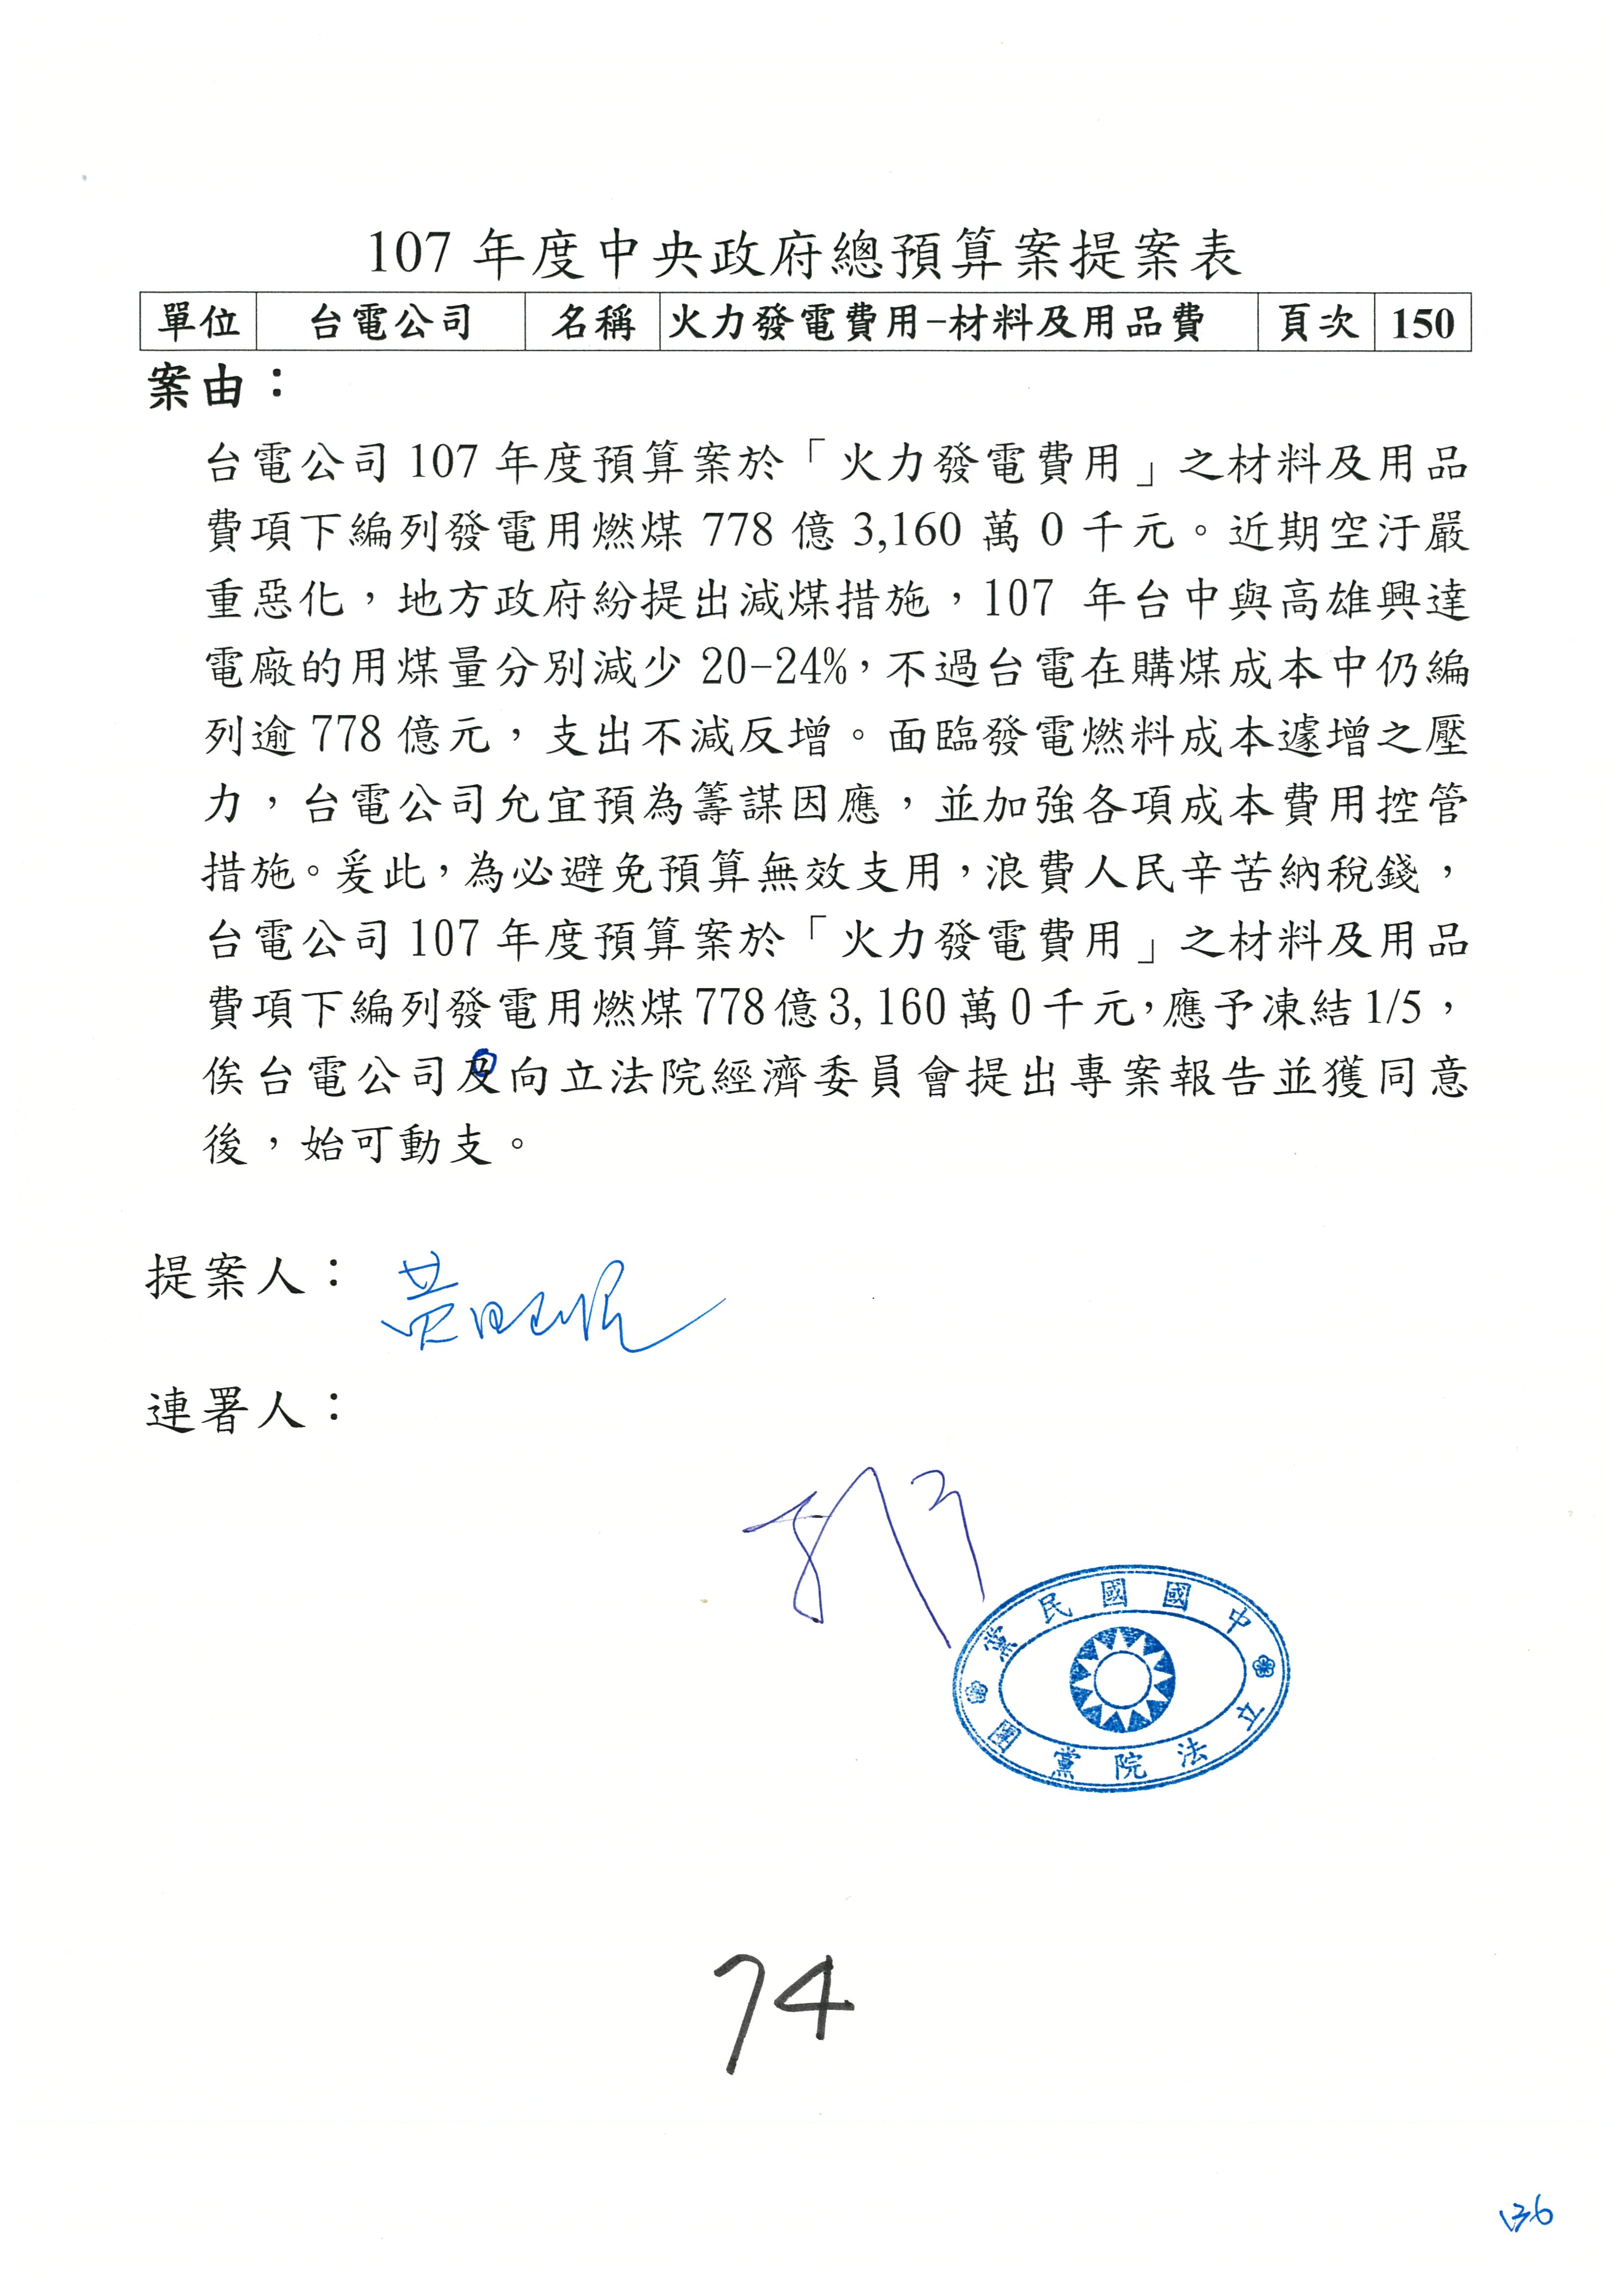 107 年度中央政府總預算案提案表
單位 台電公司 名稱 火力發電費用-材料及用品費 頁次 150
案由：
台電公司 107 年度預算案於「火力發電費用」之材料及用品
費項下編列發電用燃煤 778 億 3,160 萬 0 千元。近期空汙嚴
重惡化，地方政府紛提出減煤措施，107 年台中與高雄興達
電廠的用煤量分別減少 20-24%，不過台電在購煤成本中仍編
列逾 778 億元，支出不減反增。面臨發電燃料成本遽增之壓
力，台電公司允宜預為籌謀因應，並加強各項成本費用控管
措施。爰此，為必避免預算無效支用，浪費人民辛苦納稅錢，
台電公司 107 年度預算案於「火力發電費用」之材料及用品
費項下編列發電用燃煤 778 億 3,160 萬 0 千元，應予凍結 1/5，
俟台電公司及向立法院經濟委員會提出專案報告並獲同意
後，始可動支。
提案人：
連署人：
中國國民黨
立法院黨團
74
136